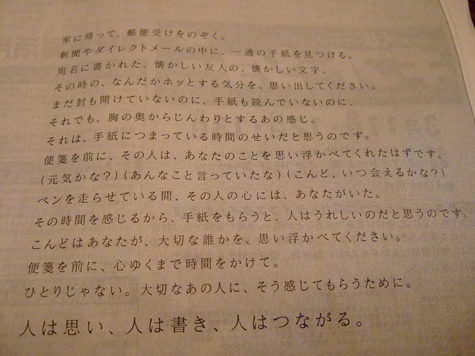 家に帰って、郵便受けをのぞく。
新聞やダイレクトメールの中に、一通の手紙を見つける。
宛名に書かれた、懐かしい友人の、懐かしい文字。
その時の、なんだかホッとする気分を、思い出してください。
まだ封も開けていないのに、手紙も読んでいないのに、
それでも、胸の奥からじんわりとするあの感じ。
それは、手紙につまっている時間のせいだと思うのです。
便箋を前に、その人は、あなたのことを思い浮かべてくれたはずです。
(元気かな?)(あんなこと言っていたな)(こんど、いつ会えるかな?)
ペンを走らせている間、その人の心には、あなたがいた。
その時間を感じるから、手紙をもらうと、人はうれしいのだと思うのです。
こんどはあなたが、大切な誰かを、思い浮かべてください。
便箋を前に、心ゆくまで時間をかけて。
ひとりじゃない。大切なあの人に、そう感じてもらうために。
人は思い、人は書き、人はつながる。